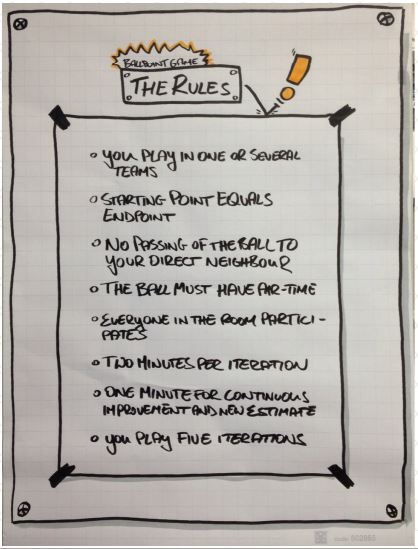 BALLPOINT GAME
THE RULES
YOU PLAY IN ONE OR SEVERAL
TEAMS
STARTING POINT EQUALS
ENDPOINT
NO PASSING OF THE BALL TO
YOUR DIRECT NEIGHBOUR
THE BALL MUST HAVE AIR-TIME
EVERYONE IN THE ROOM PARTICI-
PATES
TWO MINUTES PER ITERATION
ONE MINUTE FOR CONTINUOUS
IMPROVEMENT AND NEW ESTIMATE
YOU PLAY FIVE ITERATIONS
code: 502865